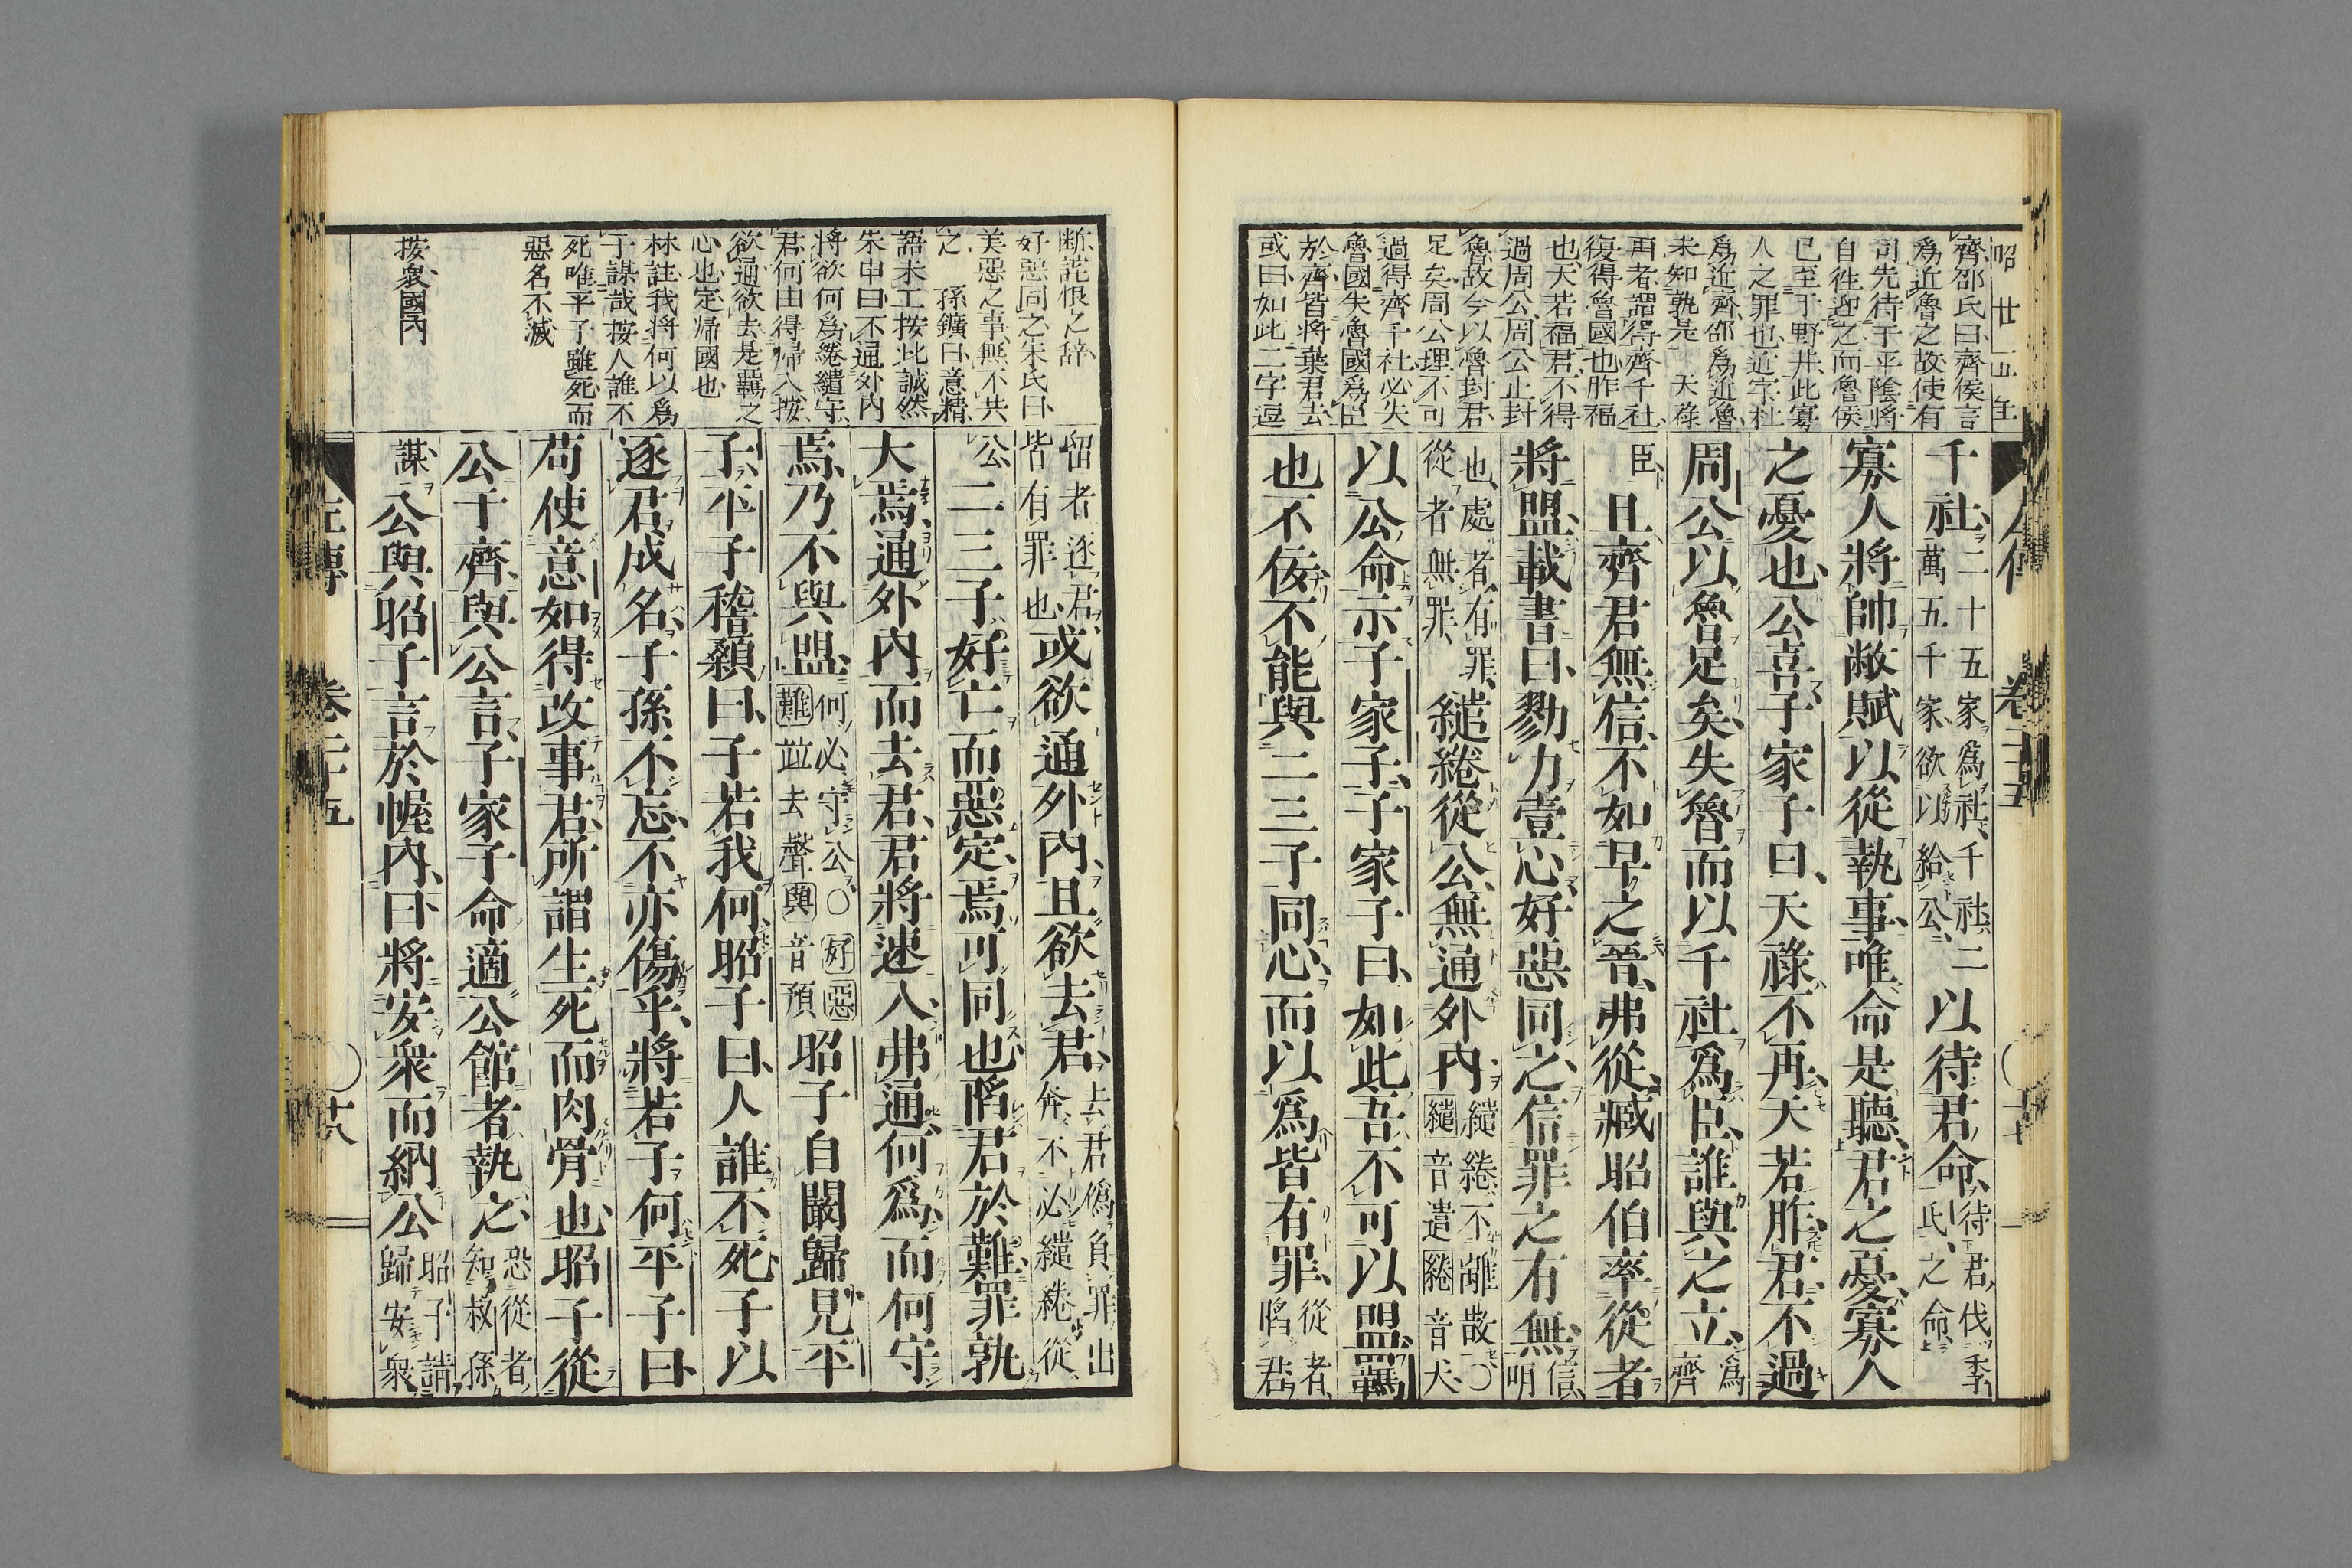 昭廿五年
齊邵氏曰齊侯言
爲近魯之故使有
司先待于平陰將
自徃迎之而魯侯
已至于野井此寡
人之罪也近字杜
爲近齊邵爲近魯
未知孰是 天祿
再者謂得齊千社
復得魯國也胙福
也天若福君不得
過周公周公止封
魯故今以魯封君
足矣周公理不可
過得齊千社必失
魯國失魯國爲臣
於齊皆將葉君去
或曰如此二字逗
千社二十五家爲社千社二萬五千家欲以給公以待君命待君伐季氏之命
寡人將帥敝賦以從執事唯命是聽君之憂寡人
之憂也公喜子家子曰天祿不再天若胙君不過
周公以魯足矣失魯而以千社爲臣誰與之立爲齊
臣且齊君無信不如早之晉弗從臧昭伯率從者
將盟載書曰勠力壹心好惡同之信罪之有無信明
也處者有罪從者無罪繾綣從公無通外內繾綣不離散〇繾音遣綣音犬
以公命示子家子子家子曰如此吾不可以盟羈
也不佞不能與二三子同心而以爲皆有罪從者陷君
卷二十五
十七
斷詫恨之辭
好惡同之朱氏曰
美惡之事無不共
之 孫鑛曰意精
語未工按此誠然
朱申曰不通外內
將欲何爲綣繾守
君何由得歸入按
欲通欲去是羈之
心也定帰國也
林註我將何以爲
子謀哉按人誰不
死唯平子雖死而
惡名不滅
按衆國內
留者逐君皆有罪也或欲通外內且欲去君去君僞負罪出奔不必繾綣從
公二三子好亡而惡定焉可同也陷君於難罪孰
大焉通外內而去君君將速入弗通何爲而何守
焉乃不與盟何必守公〇好惡難竝去聲與音預昭子自闞歸見平
子平子稽顙曰子若我何昭子曰人誰不死子以
逐君成名子孫不忘不亦傷乎將若子何平子曰
苟使意如得改事君所謂生死而肉骨也昭子從
公于齊與公言子家子命適公館者執之恐從者知叔孫
謀公與昭子言於幄內曰將安衆而納公昭子請歸安衆
左傳
卷二十五
十八